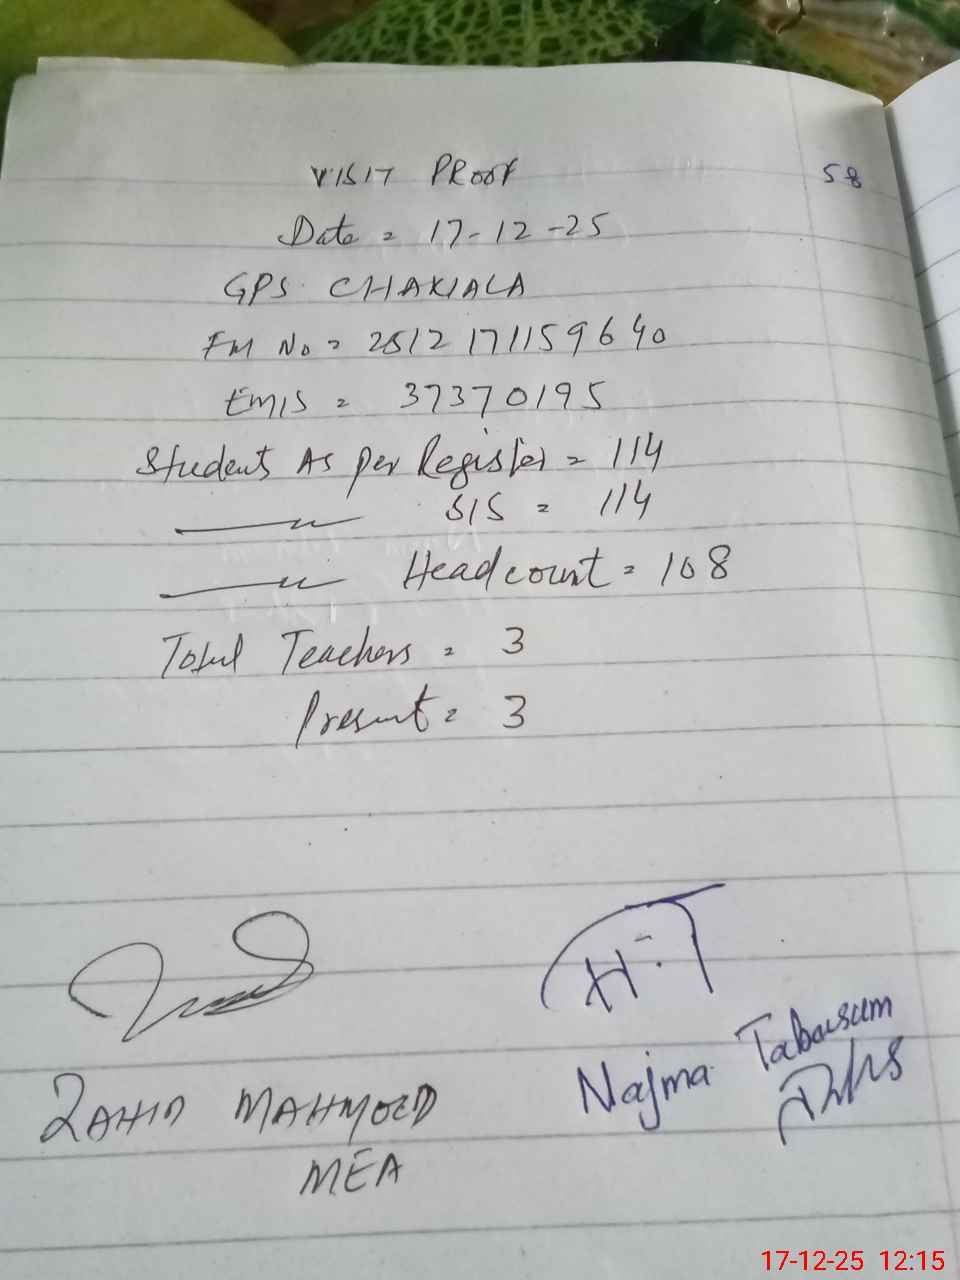 VISIT PROOF
58
Date = 17-12-25
GPS CHAKIALA
FM No = 2512171159640
EMIS = 37370195
Students As per Register = 114
—〃— SIS = 114
—〃— Head count = 108
Total Teachers = 3
Present = 3
H.T
Najma Tabasum
ZAHID MAHMOOD
MEA
17-12-25 12:15